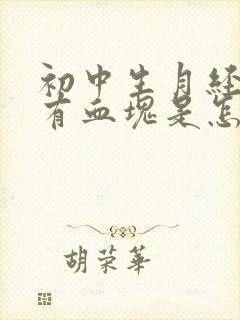 初中生月经
有血块是怎
胡荣华